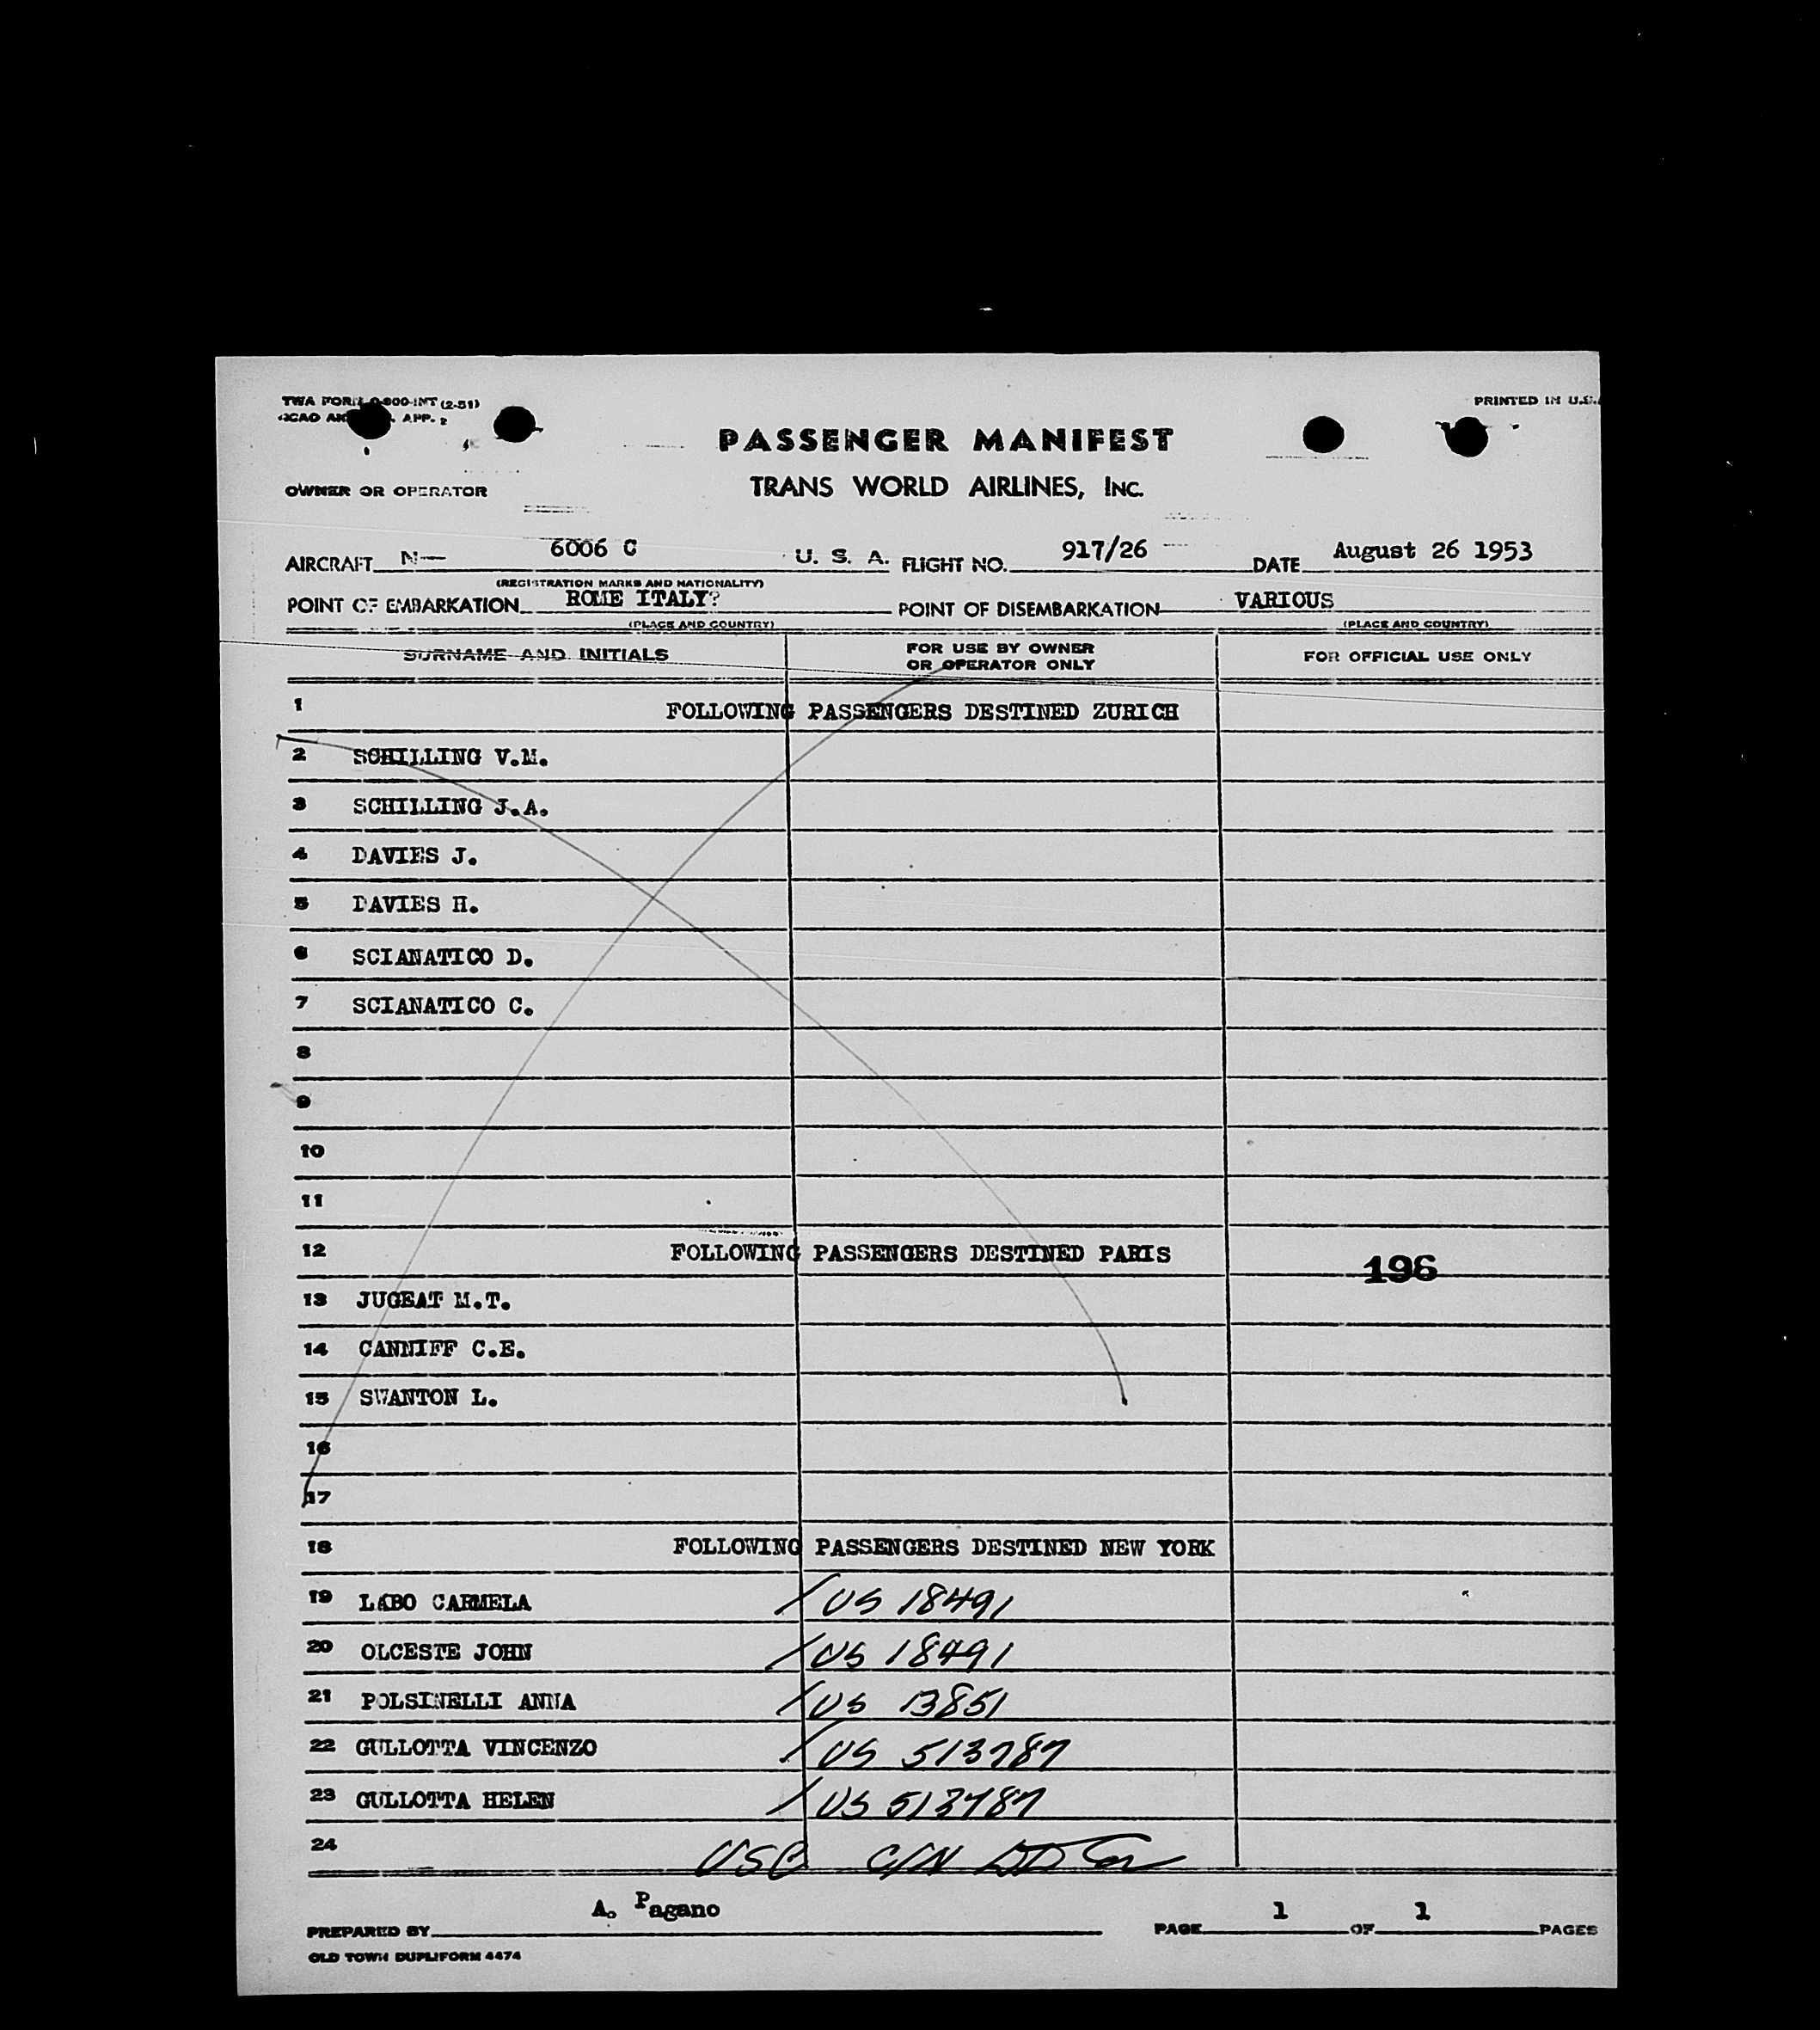 TWA FORM 0-800-INT (2-51)
PRINTED IN U.S.
ICAO APP. 2
PASSENGER MANIFEST
OWNER OR OPERATOR TRANS WORLD AIRLINES, INC.
AIRCRAFT N— 6006 C U. S. A. FLIGHT NO. 917/26 DATE August 26 1953
(REGISTRATION MARKS AND NATIONALITY)
POINT OF EMBARKATION ROME ITALY? POINT OF DISEMBARKATION VARIOUS
(PLACE AND COUNTRY) (PLACE AND COUNTRY)
SURNAME AND INITIALS FOR USE BY OWNER OR OPERATOR ONLY FOR OFFICIAL USE ONLY
1 FOLLOWING PASSENGERS DESTINED ZURICH
2 SCHILLING V.M.
3 SCHILLING J.A.
4 DAVIES J.
5 DAVIES H.
6 SCIANATICO D.
7 SCIANATICO C.
8
9
10
11
12 FOLLOWING PASSENGERS DESTINED PARIS
196
13 JUGEAT M.T.
14 CANNIFF C.E.
15 SWANTON L.
16
17
18 FOLLOWING PASSENGERS DESTINED NEW YORK
19 LABO CARMELA / US 18491
20 OLCESTE JOHN / US 18491
21 POLSINELLI ANNA / US 13851
22 GULLOTTA VINCENZO / US 513787
23 GULLOTTA HELEN / US 513787
24 USC
PREPARED BY A. Pagano PAGE 1 OF 1 PAGES
OLD TOWN DUPLIFORM 4474